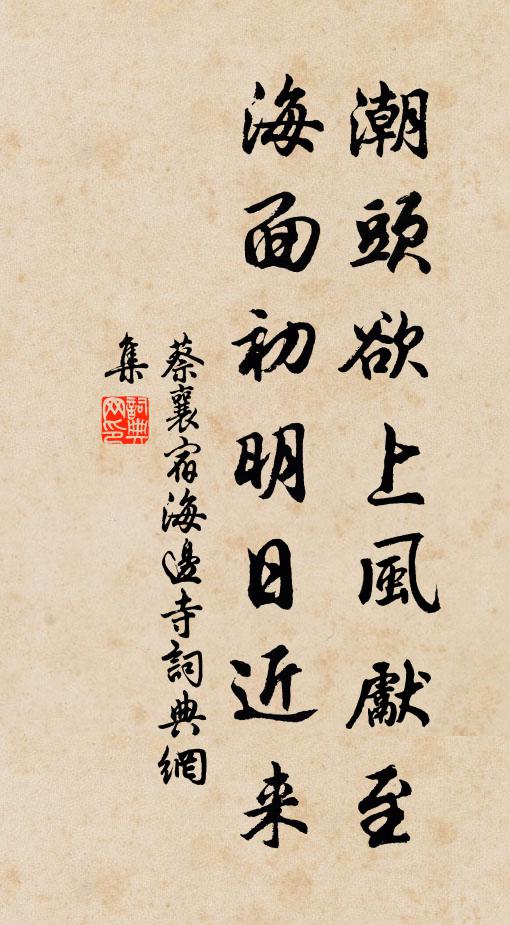 潮頭欲上風獻至
海面初明日近来
蔡襄宿海邊寺詞典網
集
詞典网印